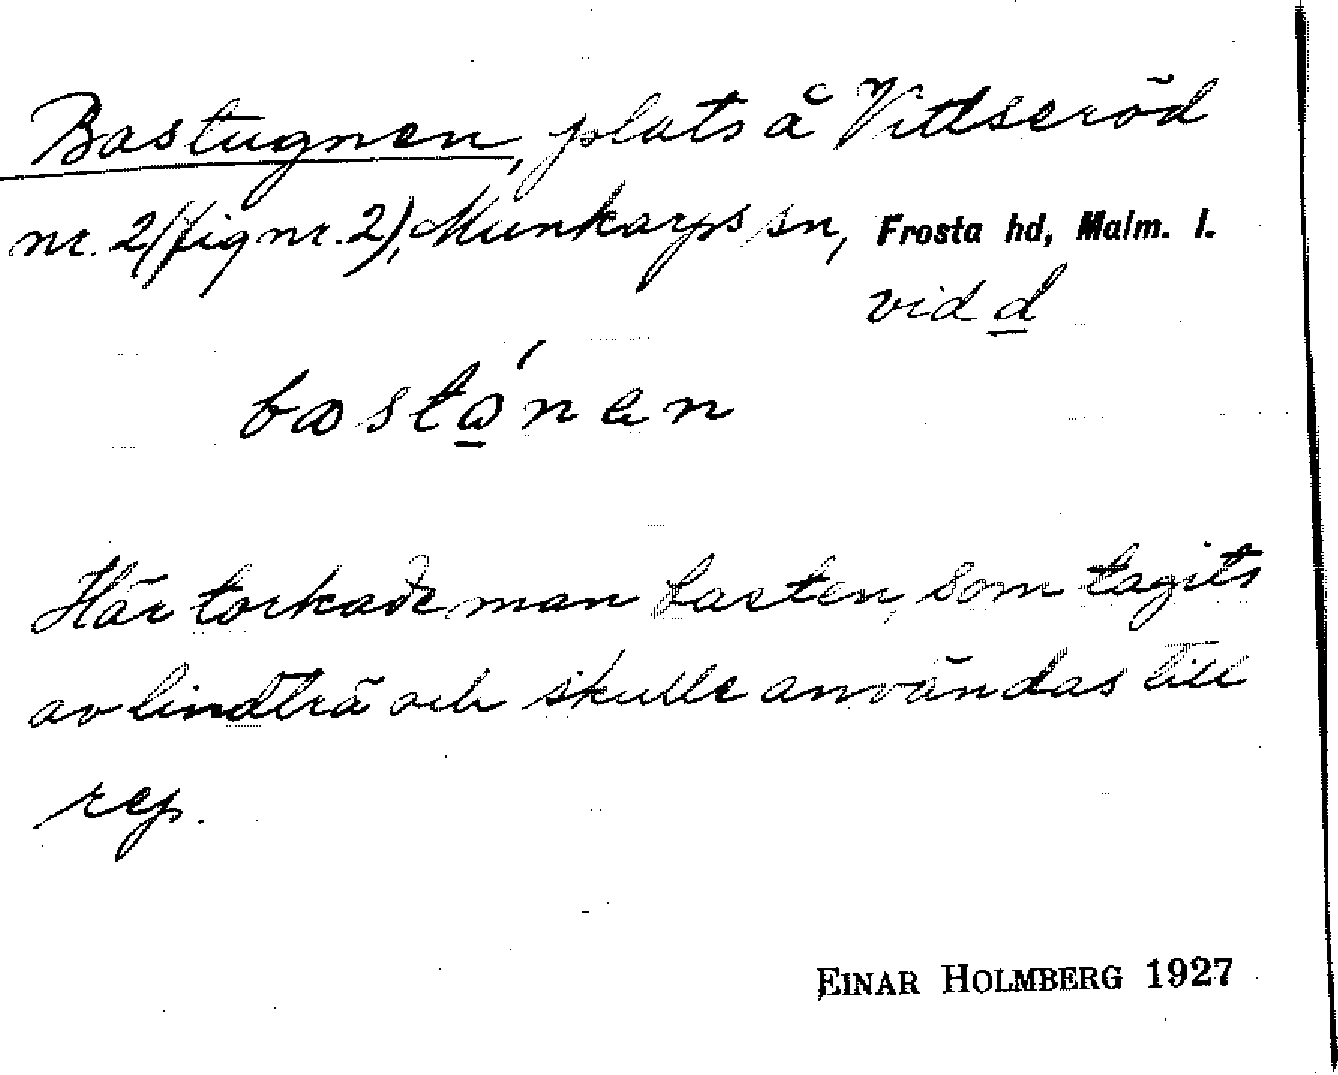 Bastugnen, plats å Vittseröd
nr. 2 (fig nr. 2), Munkarps sn, Frosta hd, Malm. l.
vid d
bastǫ́nen
Här torkade man basten, som tagits
av lindträ och skulle användas till
rep.
EINAR HOLMBERG 1927